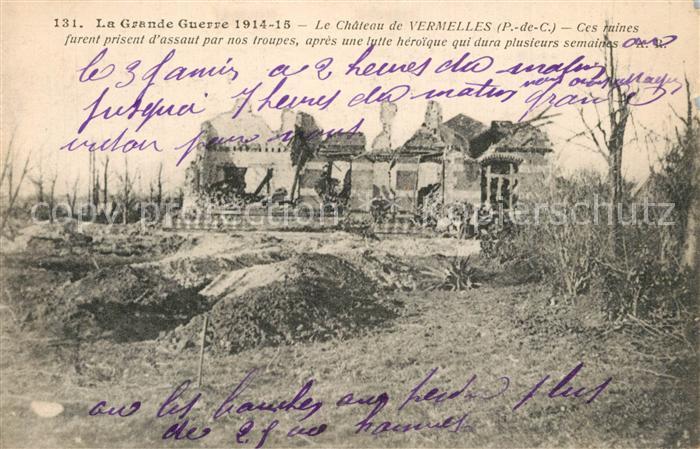 131. La Grande Guerre 1914-15 — Le Château de VERMELLES (P.-de-C.) — Ces ruines
furent prisent d'assaut par nos troupes, après une lutte héroïque qui dura plusieurs semaines
le 3 Janvier a 2 heures du matin
jusqu'à 7 heures du matin grande
victoire pour nous
copyright protection Kopierschutz
ou les boches ont perdu plus
de 2500 hommes